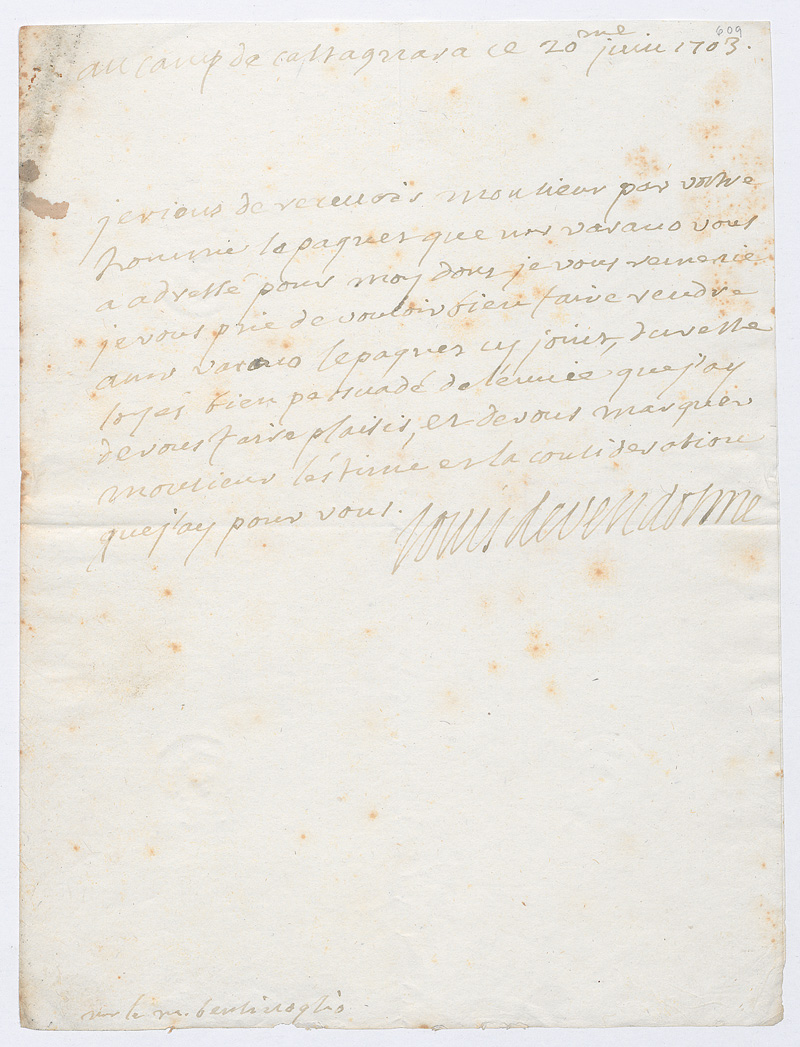 609
au camp de castagnara ce 20me juin 1703.
je viens de recevoir monsieur par vostre
homme le paquet que mr varano vous
a adressé pour moy dont je vous remercie
je vous prie de vouloir bien faire rendre
a mr varano le paquet cy joint, du reste
soyés bien persuadé de l'envie que j'ay
de vous faire plaisir, et de vous marquer
monsieur l'estime et la consideration
que j'ay pour vous.
Louis de vendosme
mr le m. bentivoglio